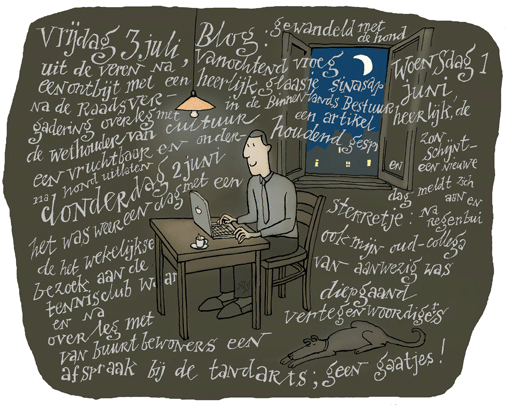 Vrijdag 3 juli, Blog: gewandeld met de hond
uit de veren na, vanochtend vroeg
een ontbijt met een heerlijk glaasje sinasap
na de Raadsver- in de Binnenlands Bestuur,
gadering overleg met een artikel
de wethouder van cultuur
een vruchtbaar en onder- houdend gesp
na hond uitlaten
donderdag 2 juni
het was weer een dag met een
de het wekelijkse
bezoek aan de
tennisclub waar
en na
overleg met
van buurtbewoners een
afspraak bij de tandarts; geen gaatjes!
Woensdag 1
juni
heerlijk, de
zon
schijnt-
en een nieuwe
dag meldt zich
aan en
sterretje: na regenbui
ook mijn oud-collega
van aanwezig was
diepgaand
vertegenwoordigers